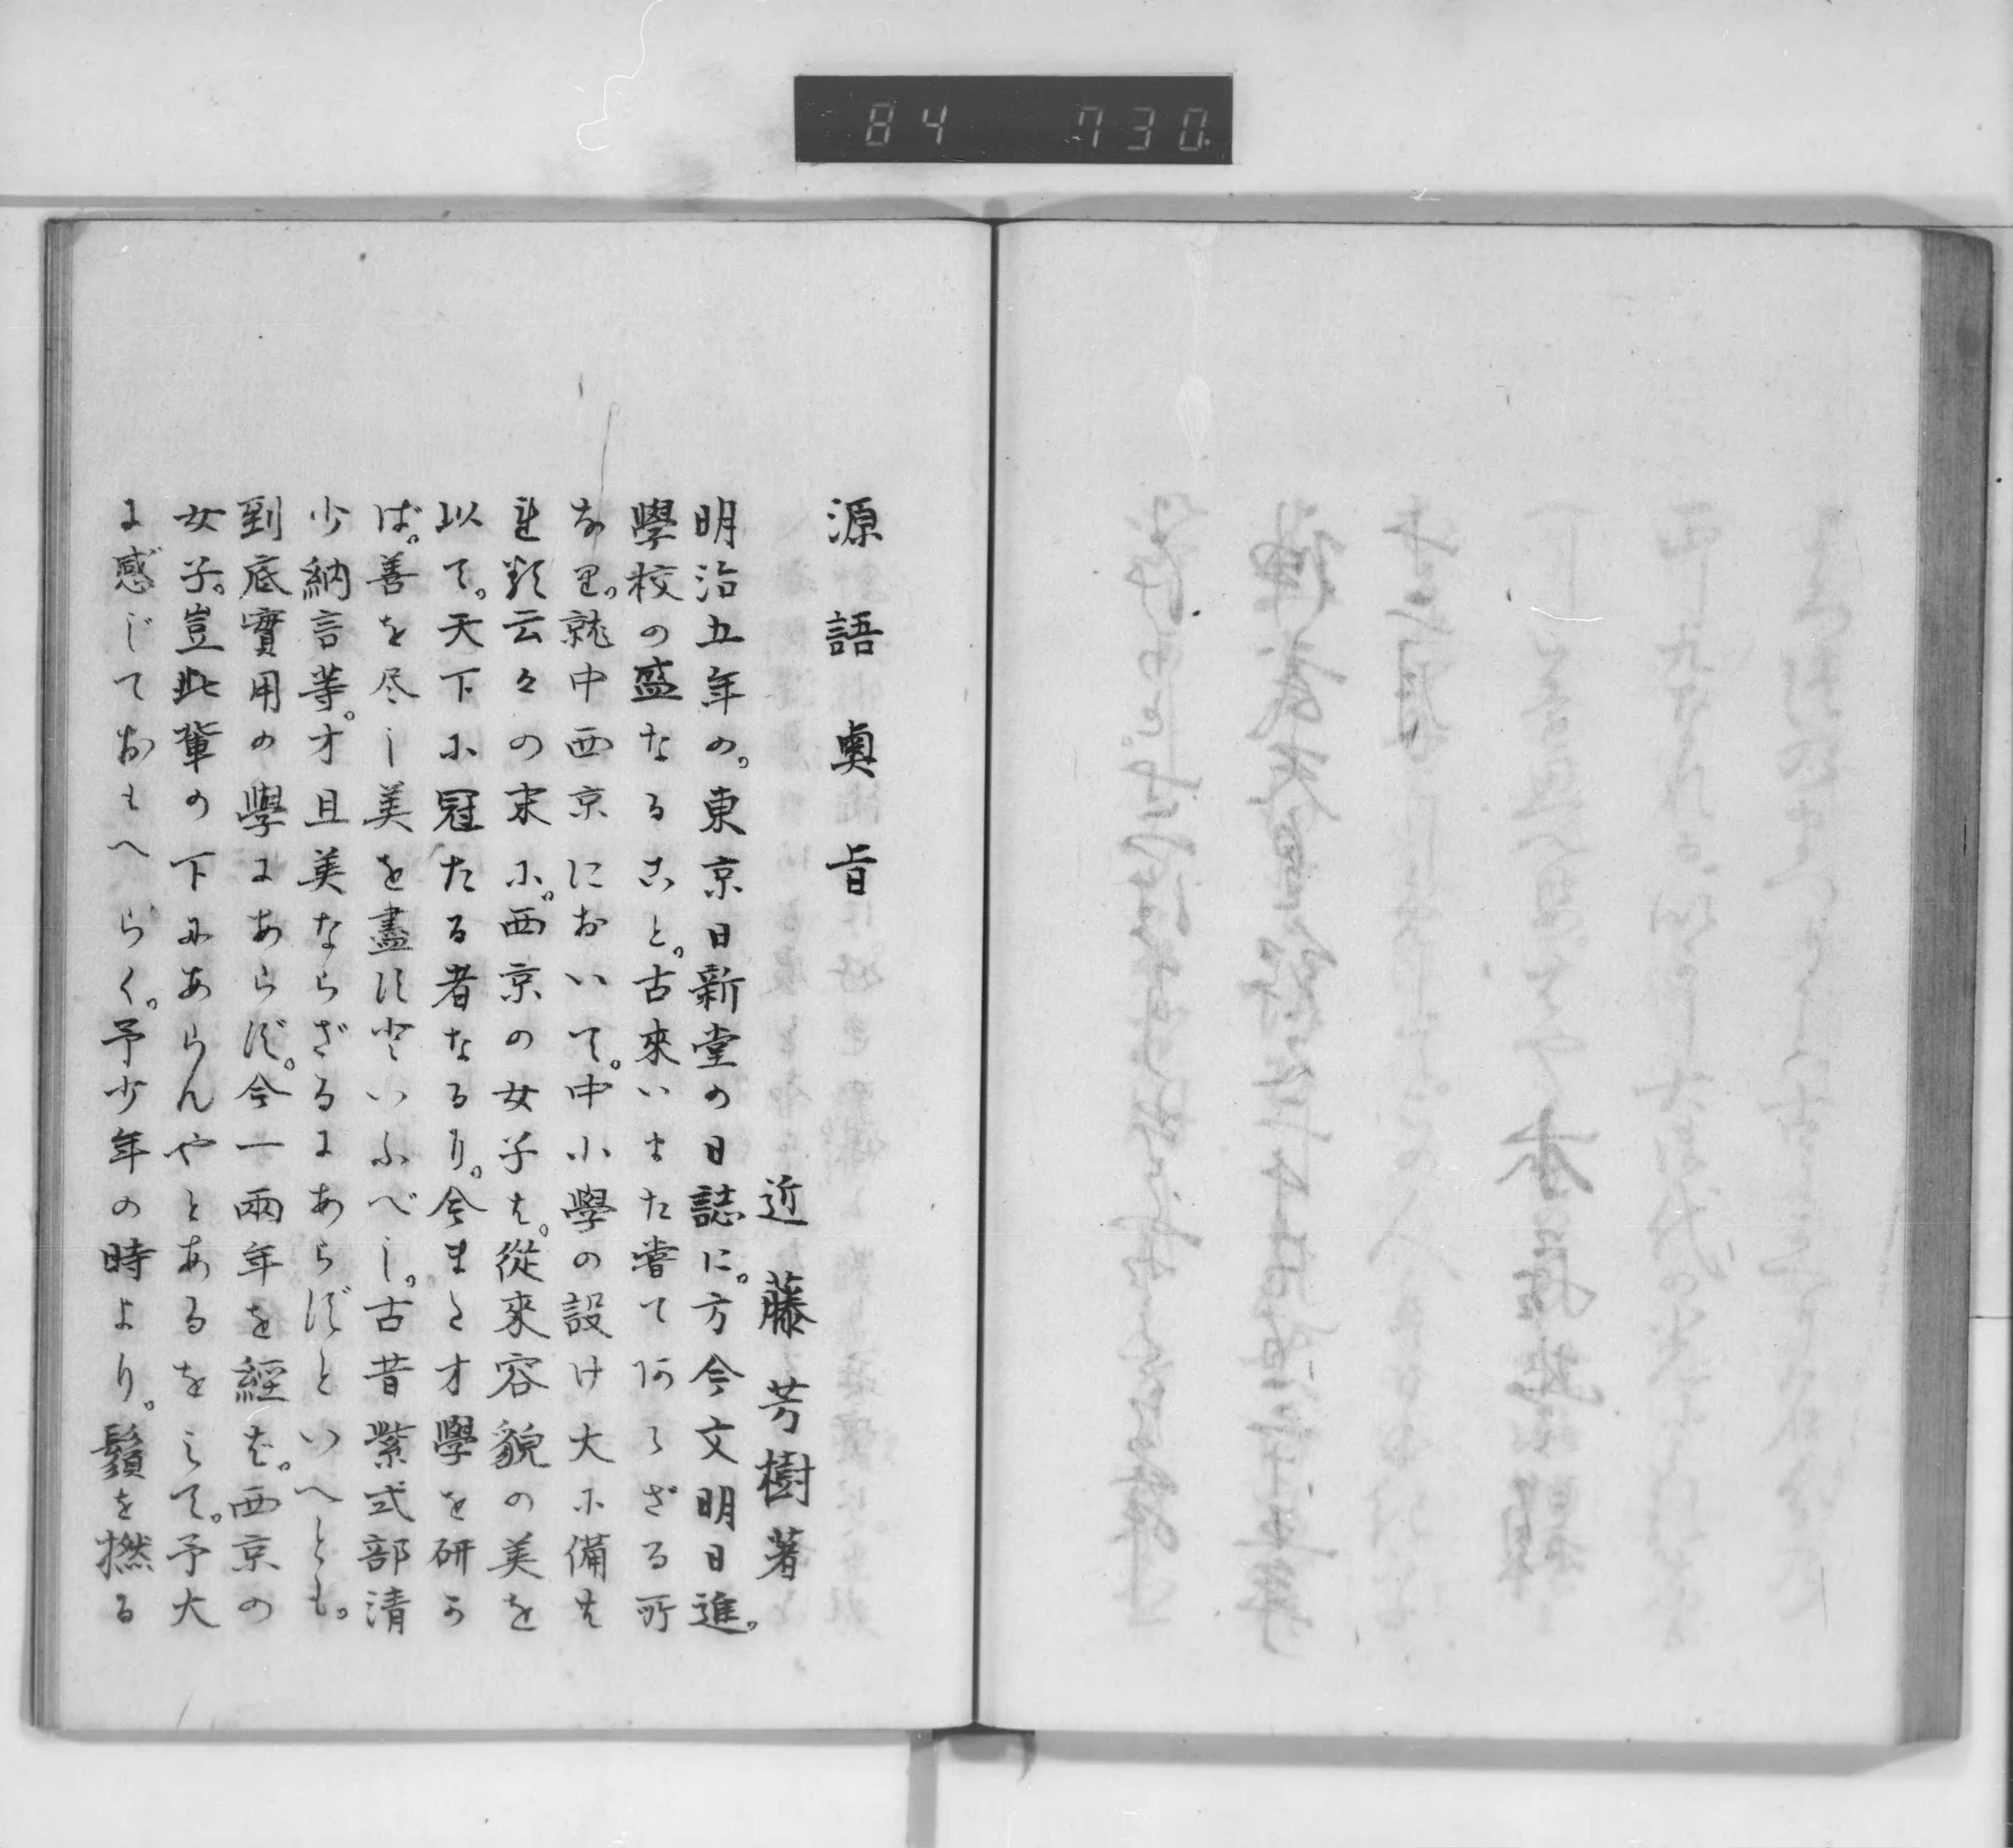 84 730
源語奧旨
近藤芳樹著
明治五年の。東京日新堂の日誌に。方今文明日進。
學校の盛なるこ と。古來いまた嘗て阿らざる所
なり。就中西京において。中小學の設け大に備は
れ類云々の末に。西京の女子は。從來容貌の美を
以て。天下に冠たる者なるり。今また才學を研か
ば。善を尽し美を盡すといふべし。古昔紫式部清
少納言等。才且美ならざるにあらずといへとも。
到底實用の學にあらず。今一兩年を經ば。西京の
女子。豈此輩の下にあらんやとあるをみて。予大
に感じておもへらく。予少年の時より。鬚を撚る